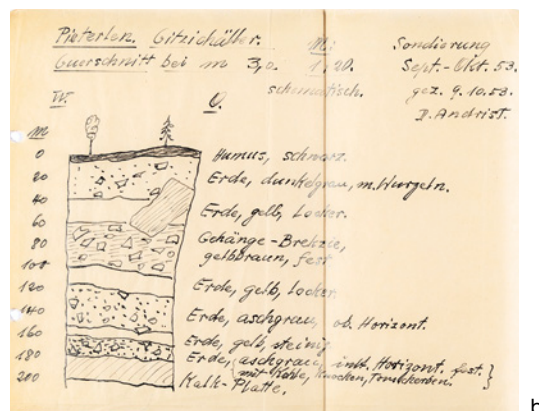 Pieterlen. Gitzichäller.
Querschnitt bei m 3,0.
M:
1:20.
schematisch.
Sondierung
Sept.-Okt. 53.
gez. 9.10.53.
D. Andrist.
W.
O.
m
0
20
40
60
80
100
120
140
160
180
200
Humus, schwarz.
Erde, dunkelgrau, m. Wurzeln.
Erde, gelb, locker.
Gehänge-Brekzie,
gelbbraun, fest
Erde, gelb, locker.
Erde, aschgrau, ob. Horizont.
Erde, gelb, steinig
Erde, aschgrau, Horizont. fest. }
mit Kohle, Knochen, Tonscherben.
Kalk-Platte.
b